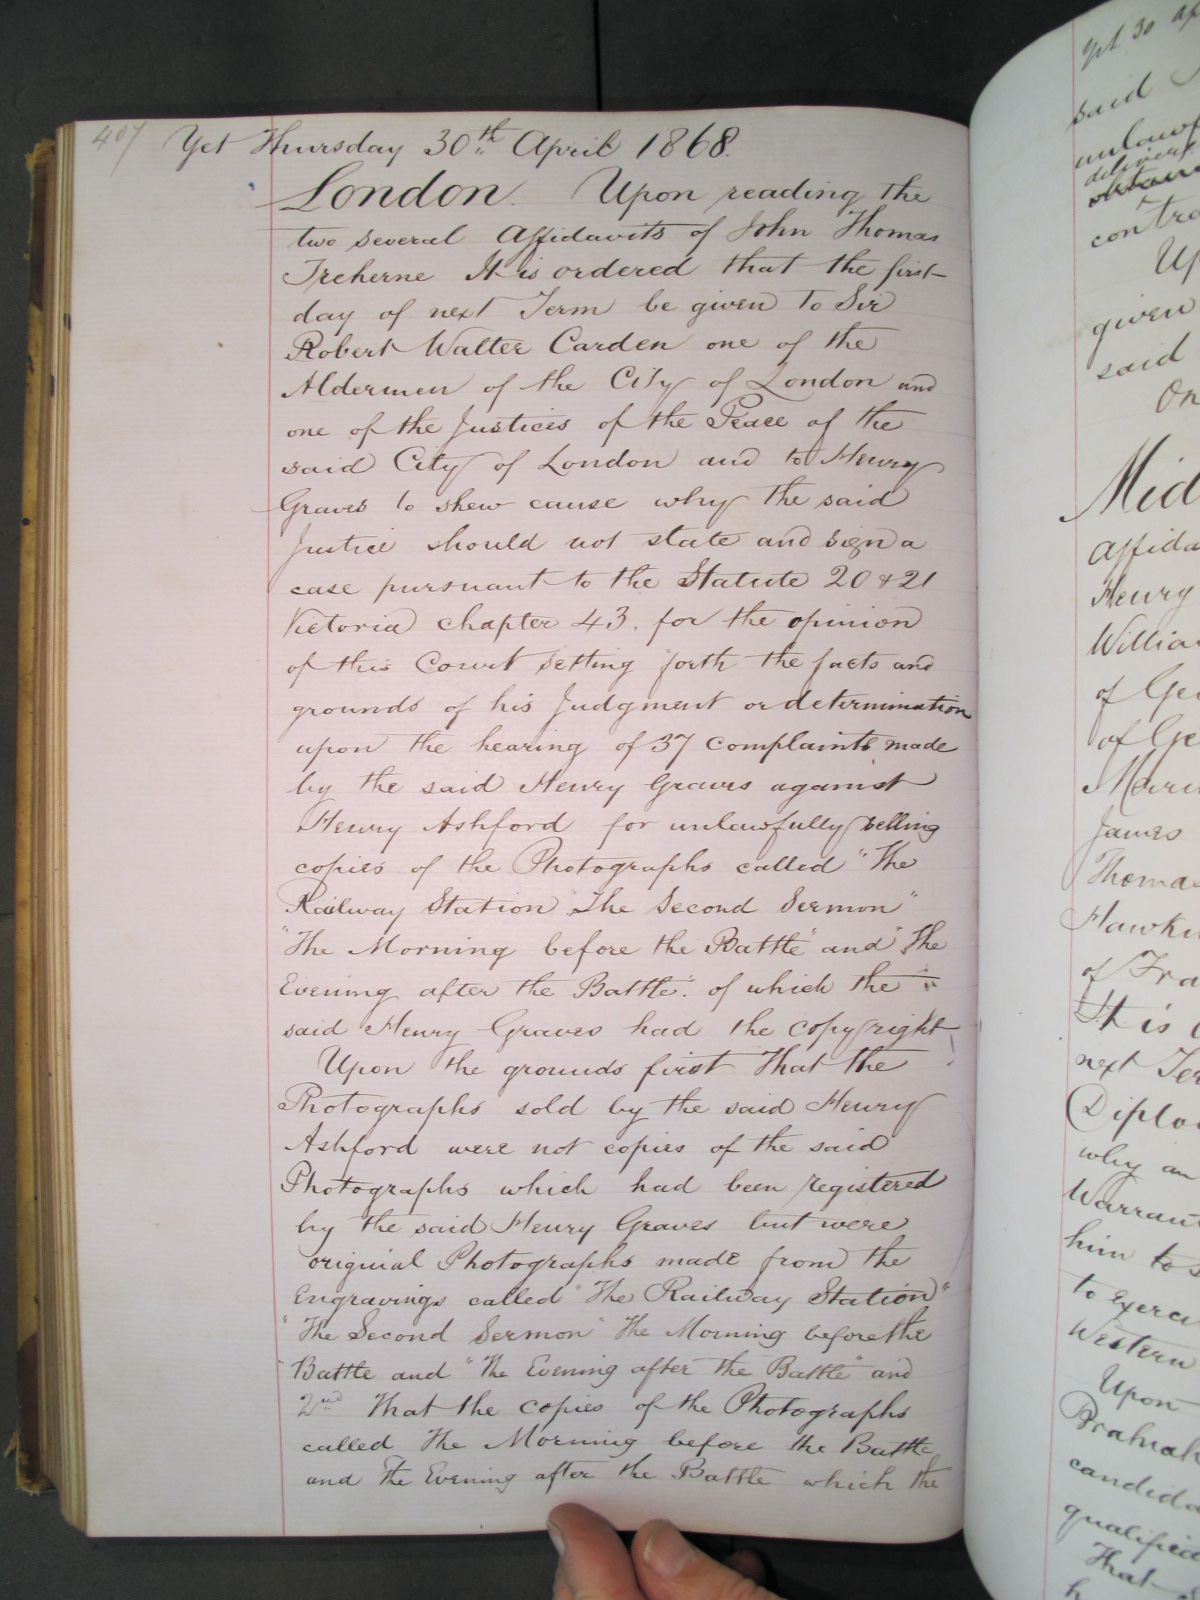 407
Yet Thursday 30th April 1868.
London. Upon reading the
two several Affidavits of John Thomas
Treherne It is ordered that the first
day of next Term be given to Sir
Robert Walter Carden one of the
Aldermen of the City of London and
one of the Justices of the Peace of the
said City of London and to Henry
Graves to shew cause why the said
Justice should not state and sign a
case pursuant to the Statute 20 & 21
Victoria chapter 43. for the opinion
of this Court setting forth the facts and
grounds of his Judgment or determination
upon the hearing of 37 complaints made
by the said Henry Graves against
Henry Ashford for unlawfully selling
copies of the Photographs called "The
Railway Station "The Second Sermon"
"The Morning before the Battle" and "The
Evening after the Battle". of which the
said Henry Graves had the copyright
Upon the grounds first That the
Photographs sold by the said Henry
Ashford were not copies of the said
Photographs which had been registered
by the said Henry Graves but were
original Photographs made from the
Engravings called "The Railway Station"
"The Second Sermon" The Morning before the
Battle and "The Evening after the Battle" and
2nd That the copies of the Photographs
called The Morning before the Battle
and The Evening after the Battle which the
Yet 30
said
given
said
On
Mid
Affida
Henry
Willia
of Geo
of Ge
James
Thoma
Hawki
of Fra
It is
next Ter
Diplo
why an
Warran
him to
to exerci
Western
Upon
candida
qualified
That